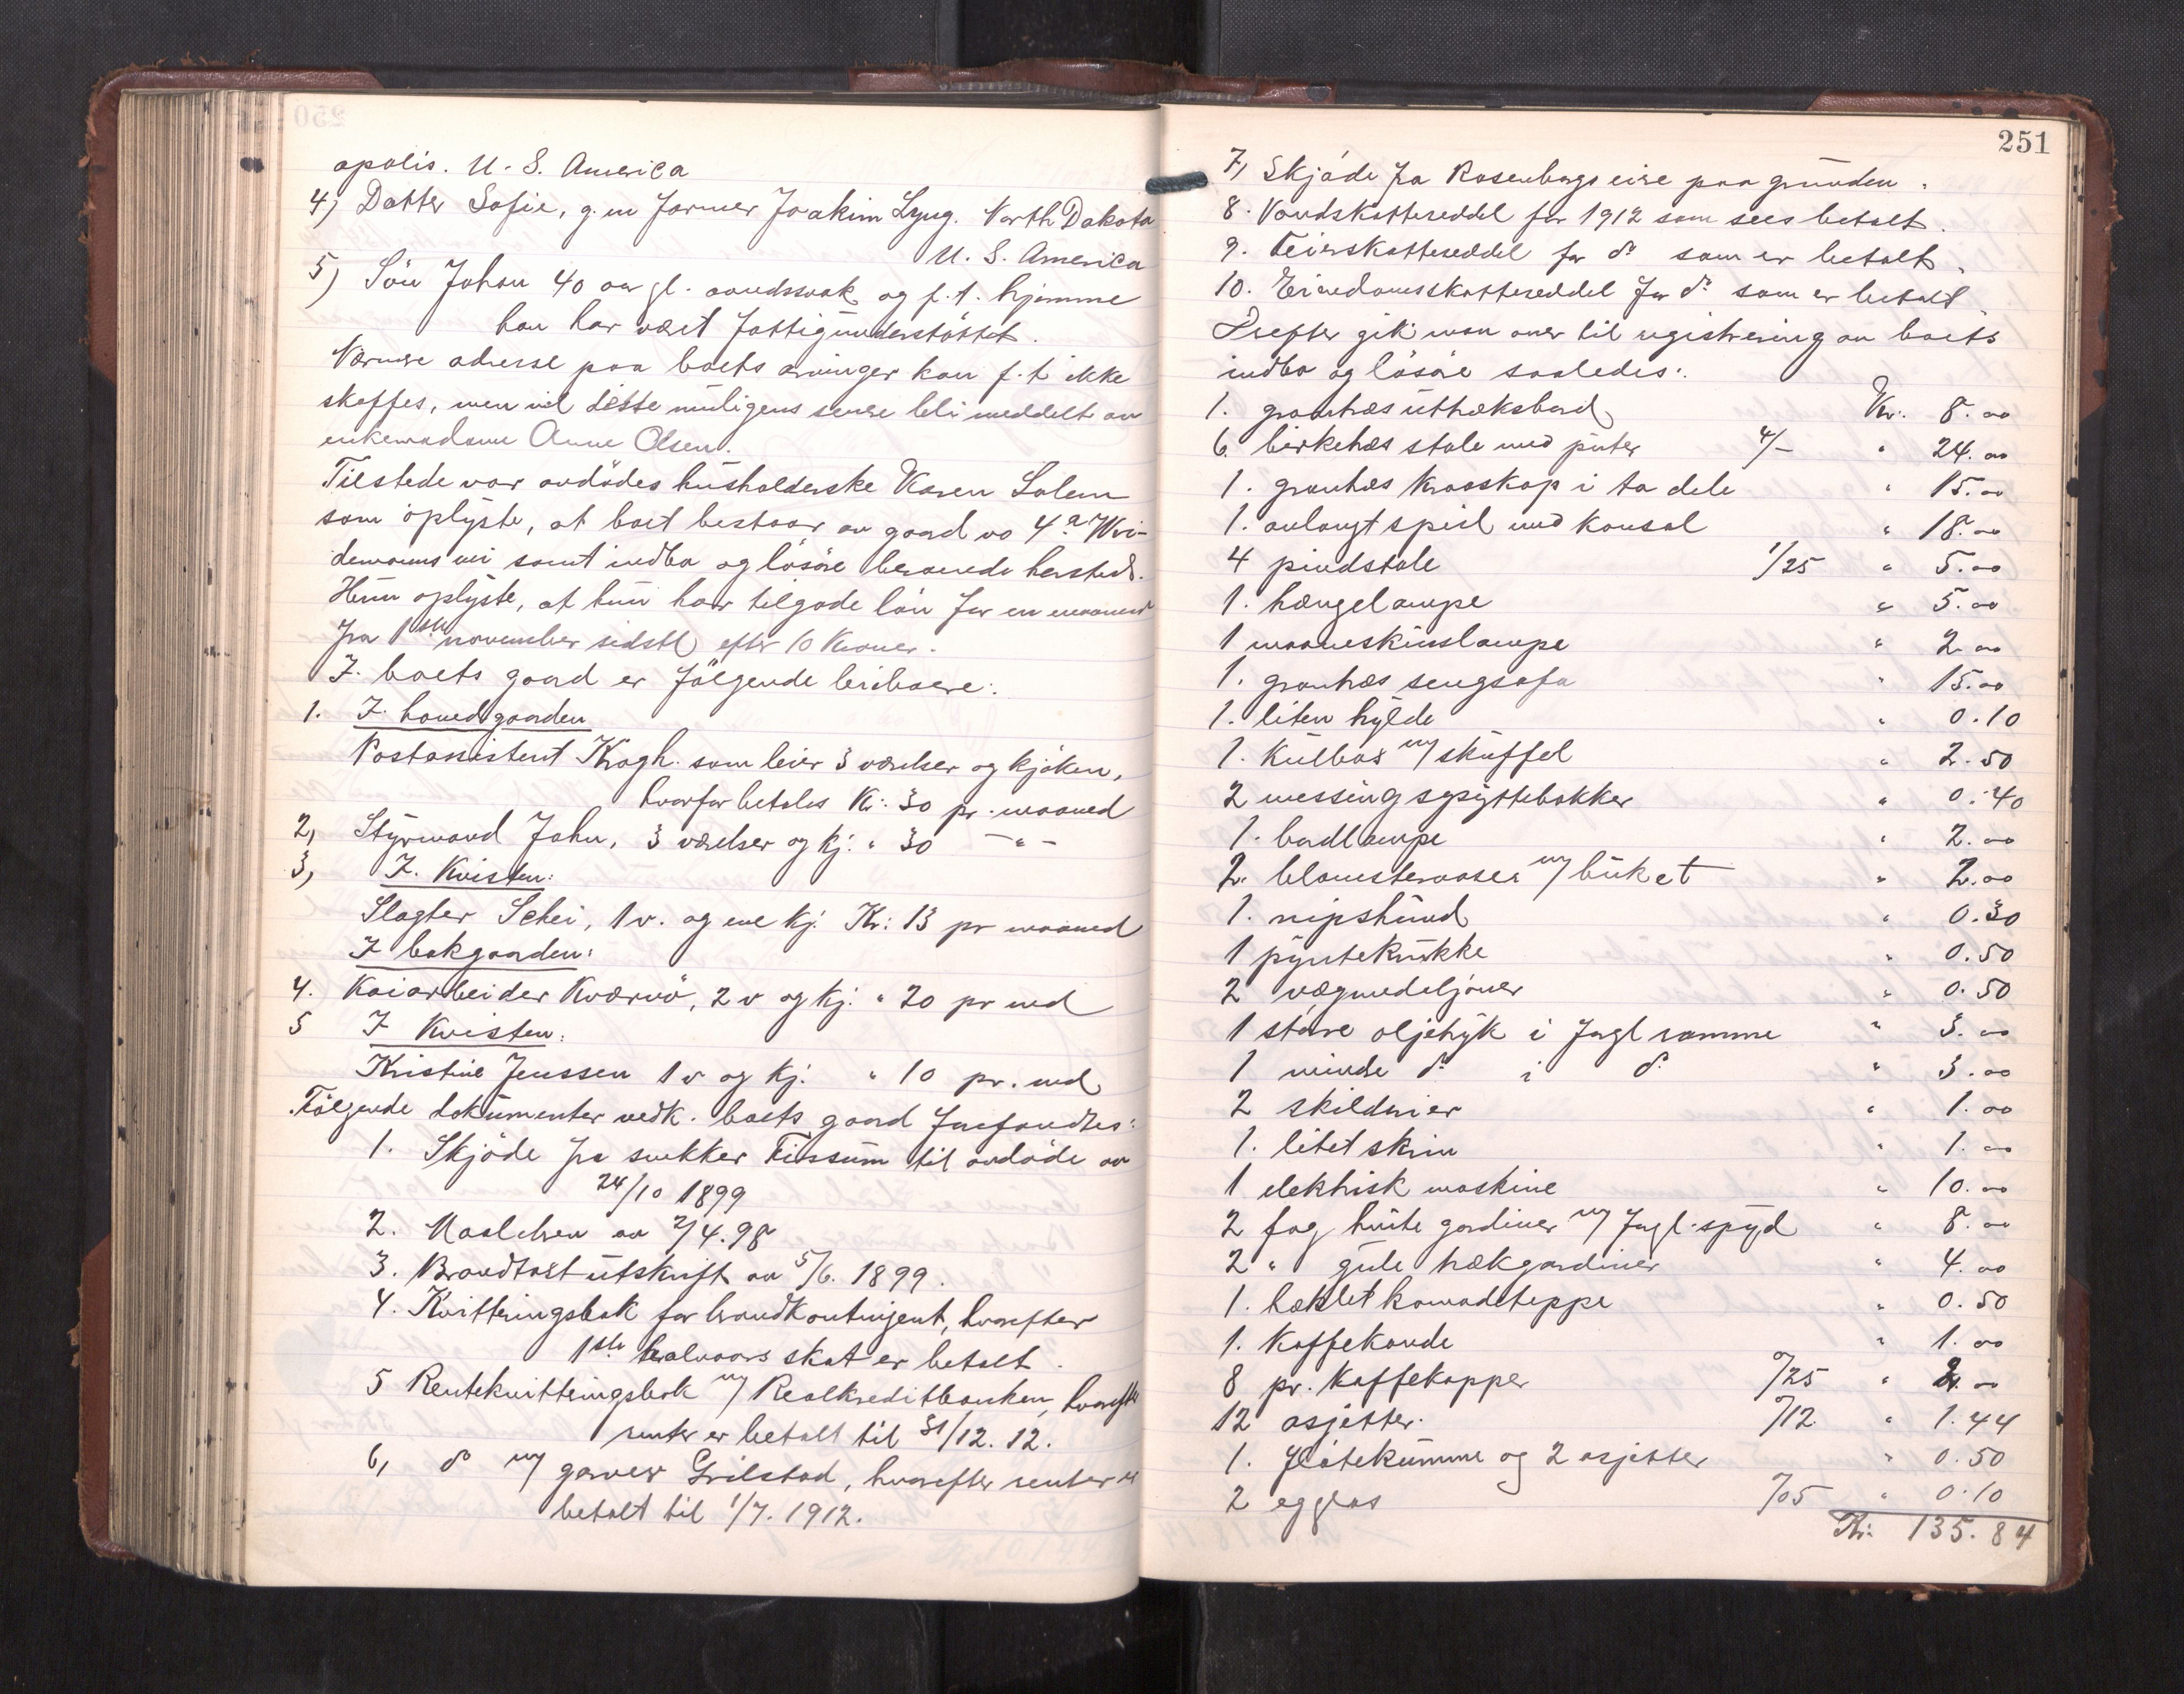 opolis. U. S. America
4) Datter Sofie, g. m farmer Joakim Lyng. North Dakota
U. S. America
5) Sön Johan 40 aar gl. aandssvak og f. t. hjemme
han har vært fattigunderstöttet.
Nærmere adresse paa boets arvinger kan f. t. ikke
skaffes, men vil disse muligens senere bli meddelt av
enkemadam Anne Olsen.
Tilstede var avdödes husholderske Karen Solem
som oplyste, at boet bestaar av gaard no 4a Wi-
demanns vei samt indbo og lösöre beroende hersteds.
Hun oplyste, at hun har tilgode lön for en maaned
fra 1ste november sidstl efter 10 Kroner.
I boets gaard er fölgende beboere:
1. I hovedgaarden
Postassistent Krogh som leier 3 værelser og kjöken,
hvorfor betales Kr: 30 pr. maaned
2, Styrmand John, 3 værelser og kj. " 30 - " -
3, I Kvisten:
Slagter Schei, 1 v. og me kj. Kr: 13 pr maaned
I bakgaarden:
4. Kaiarbeider Kværnö, 2 v og kj. " 20 pr md
5 I Kvisten:
Kristine Jenssen 1 v og kj. " 10 pr. md
Fölgende dokumenter vedk. boets gaard forefandtes:
1. Skjöde fra snekker Tissum til avdöde av
24/10 1899
2. Maalebrev av 2/4.98
3. Brandtakstutskrift av 5/6. 1899.
4. Kvitteringsbok for brandkontingent, hvorefter
1ste halvaars skat er betalt.
5 Rentekvitteringsbok m/ Realkreditbanken, hvorefter
renter er betalt til 31/12. 12.
6, do m/ garver Grilstad, hvorefter renter er
betalt til 1/7. 1912.
251
7, Skjöde fra Rosenborgs eire paa grunden.
8. Vandskatteseddel for 1912 som sees betalt.
9. Feierskatteseddel for do som er betalt.
10. Eiendomsskatteseddel for do som er betalt
Derefter gik man over til registrering av boets
indbo og lösöre saaledes:
1. grantræs uttræksbord Kr: 8.00
6. birketræs stole med puter 4/- " 24.00
1. grantræs Kraaskap i to dele " 15.00
1. avlangt speil med Konsol " 18.00
4 pindstole 1/25 " 5.00
1. hængelampe " 5.00
1 maaneskinslampe " 2.00
1. grantræs sengsofa " 15.00
1. liten hylde " 0.10
1. Kulboks m/ skuffel " 2.50
2 messingspyttebakker " 0.40
1. bordlampe " 2.00
2. blomstervaser m/ buket " 2.00
1. nipshund " 0.30
1 pyntekrukke " 0.50
2 vægmedeljoner " 0.50
1 större oljetryk i forgl ramme " 3.00
1 mindre do i do " 3.00
2 skildrier " 1.00
1. litet skrin " 1.00
1 elektrisk maskine " 10.00
2 fag hvite gardiner m/ forgl. spyd " 8.00
2 " gule trækgardiner " 4.00
1. hæklet komodeteppe " 0.50
1. Kaffekande " 1.00
8 pr. Kaffekopper 0/25 " 2.00
12 asjetter. 0/12 " 1.44
1. flötekumme og 2 asjetter " 0.50
2 egglas 0/05 " 0.10
Kr: 135.84